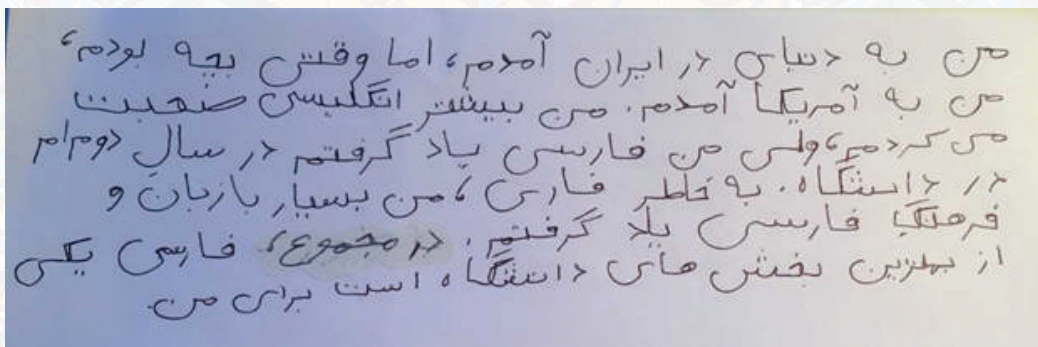 من به دنیای در ایران آمدم، اما وقتی بچه بودم،
من به آمریکا آمدم. من بیشتر انگلیسی صحبت
می کردم، ولی من فارسی یاد گرفتم در سال دوم ام
در دانشگاه. به خاطر فارسی، من بسیار بازبان و
فرهنگ فارسی یاد گرفتم. در مجموع، فارسی یکی
از بهترین بخش های دانشگاه است برای من.